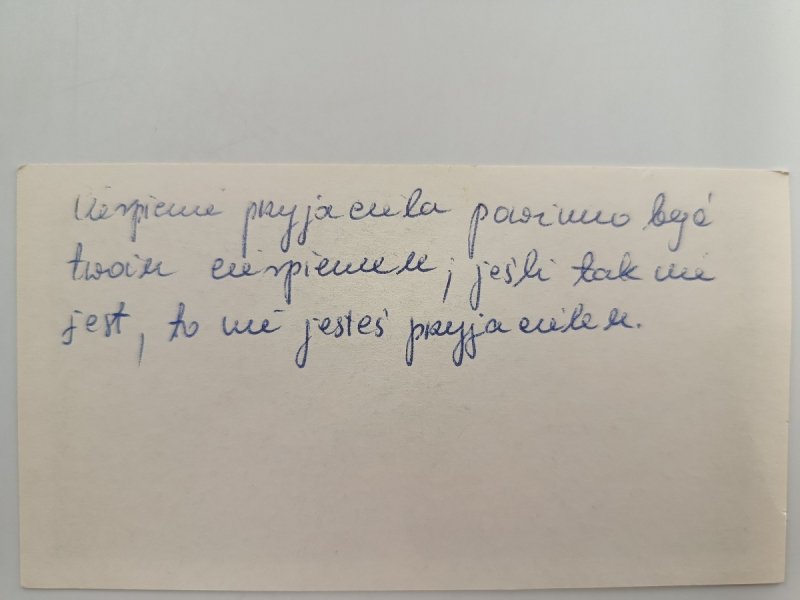 Cierpienie przyjaciela powinno być
twoim cierpieniem; jeśli tak nie
jest, to nie jesteś przyjacielem.